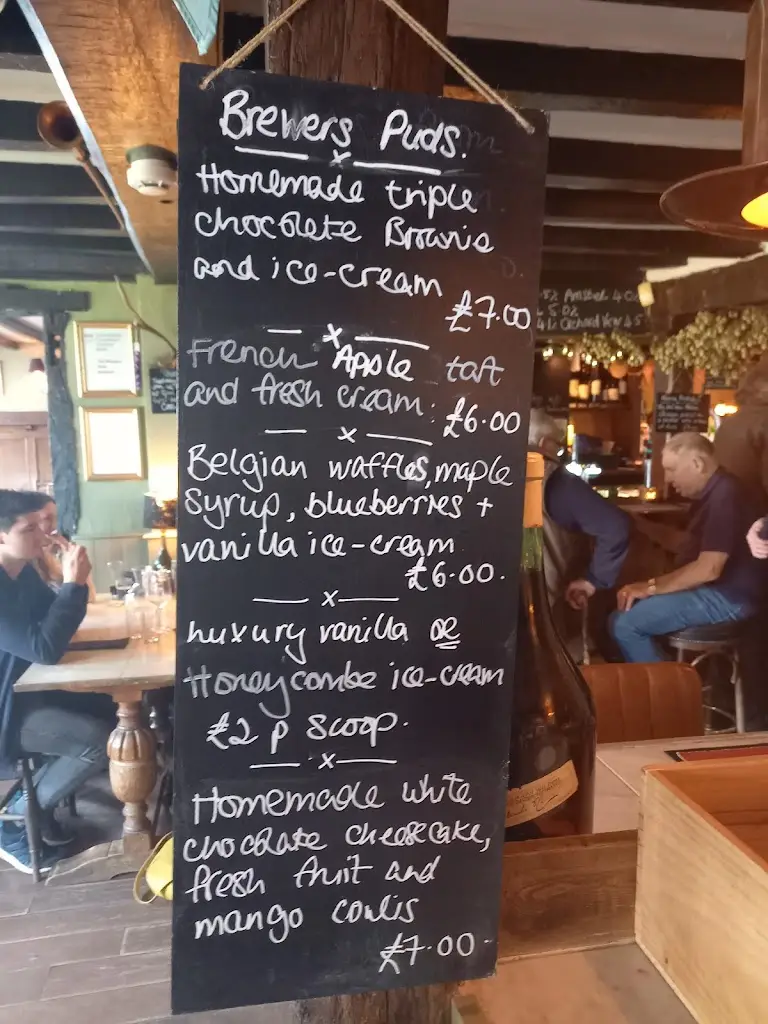 Brewers Puds.
Homemade triple
chocolate Brownie
and ice-cream
£7.00
French Apple taft
and fresh cream: £6.00
Belgian waffles, maple
syrup, blueberries +
vanilla ice-cream
£6.00.
Luxury vanilla or
Honeycombe ice-cream
£2 p scoop.
Homemade white
chocolate cheesecake,
fresh fruit and
mango coulis
£7.00-
Amstel 4.0
Orchard View 4.5